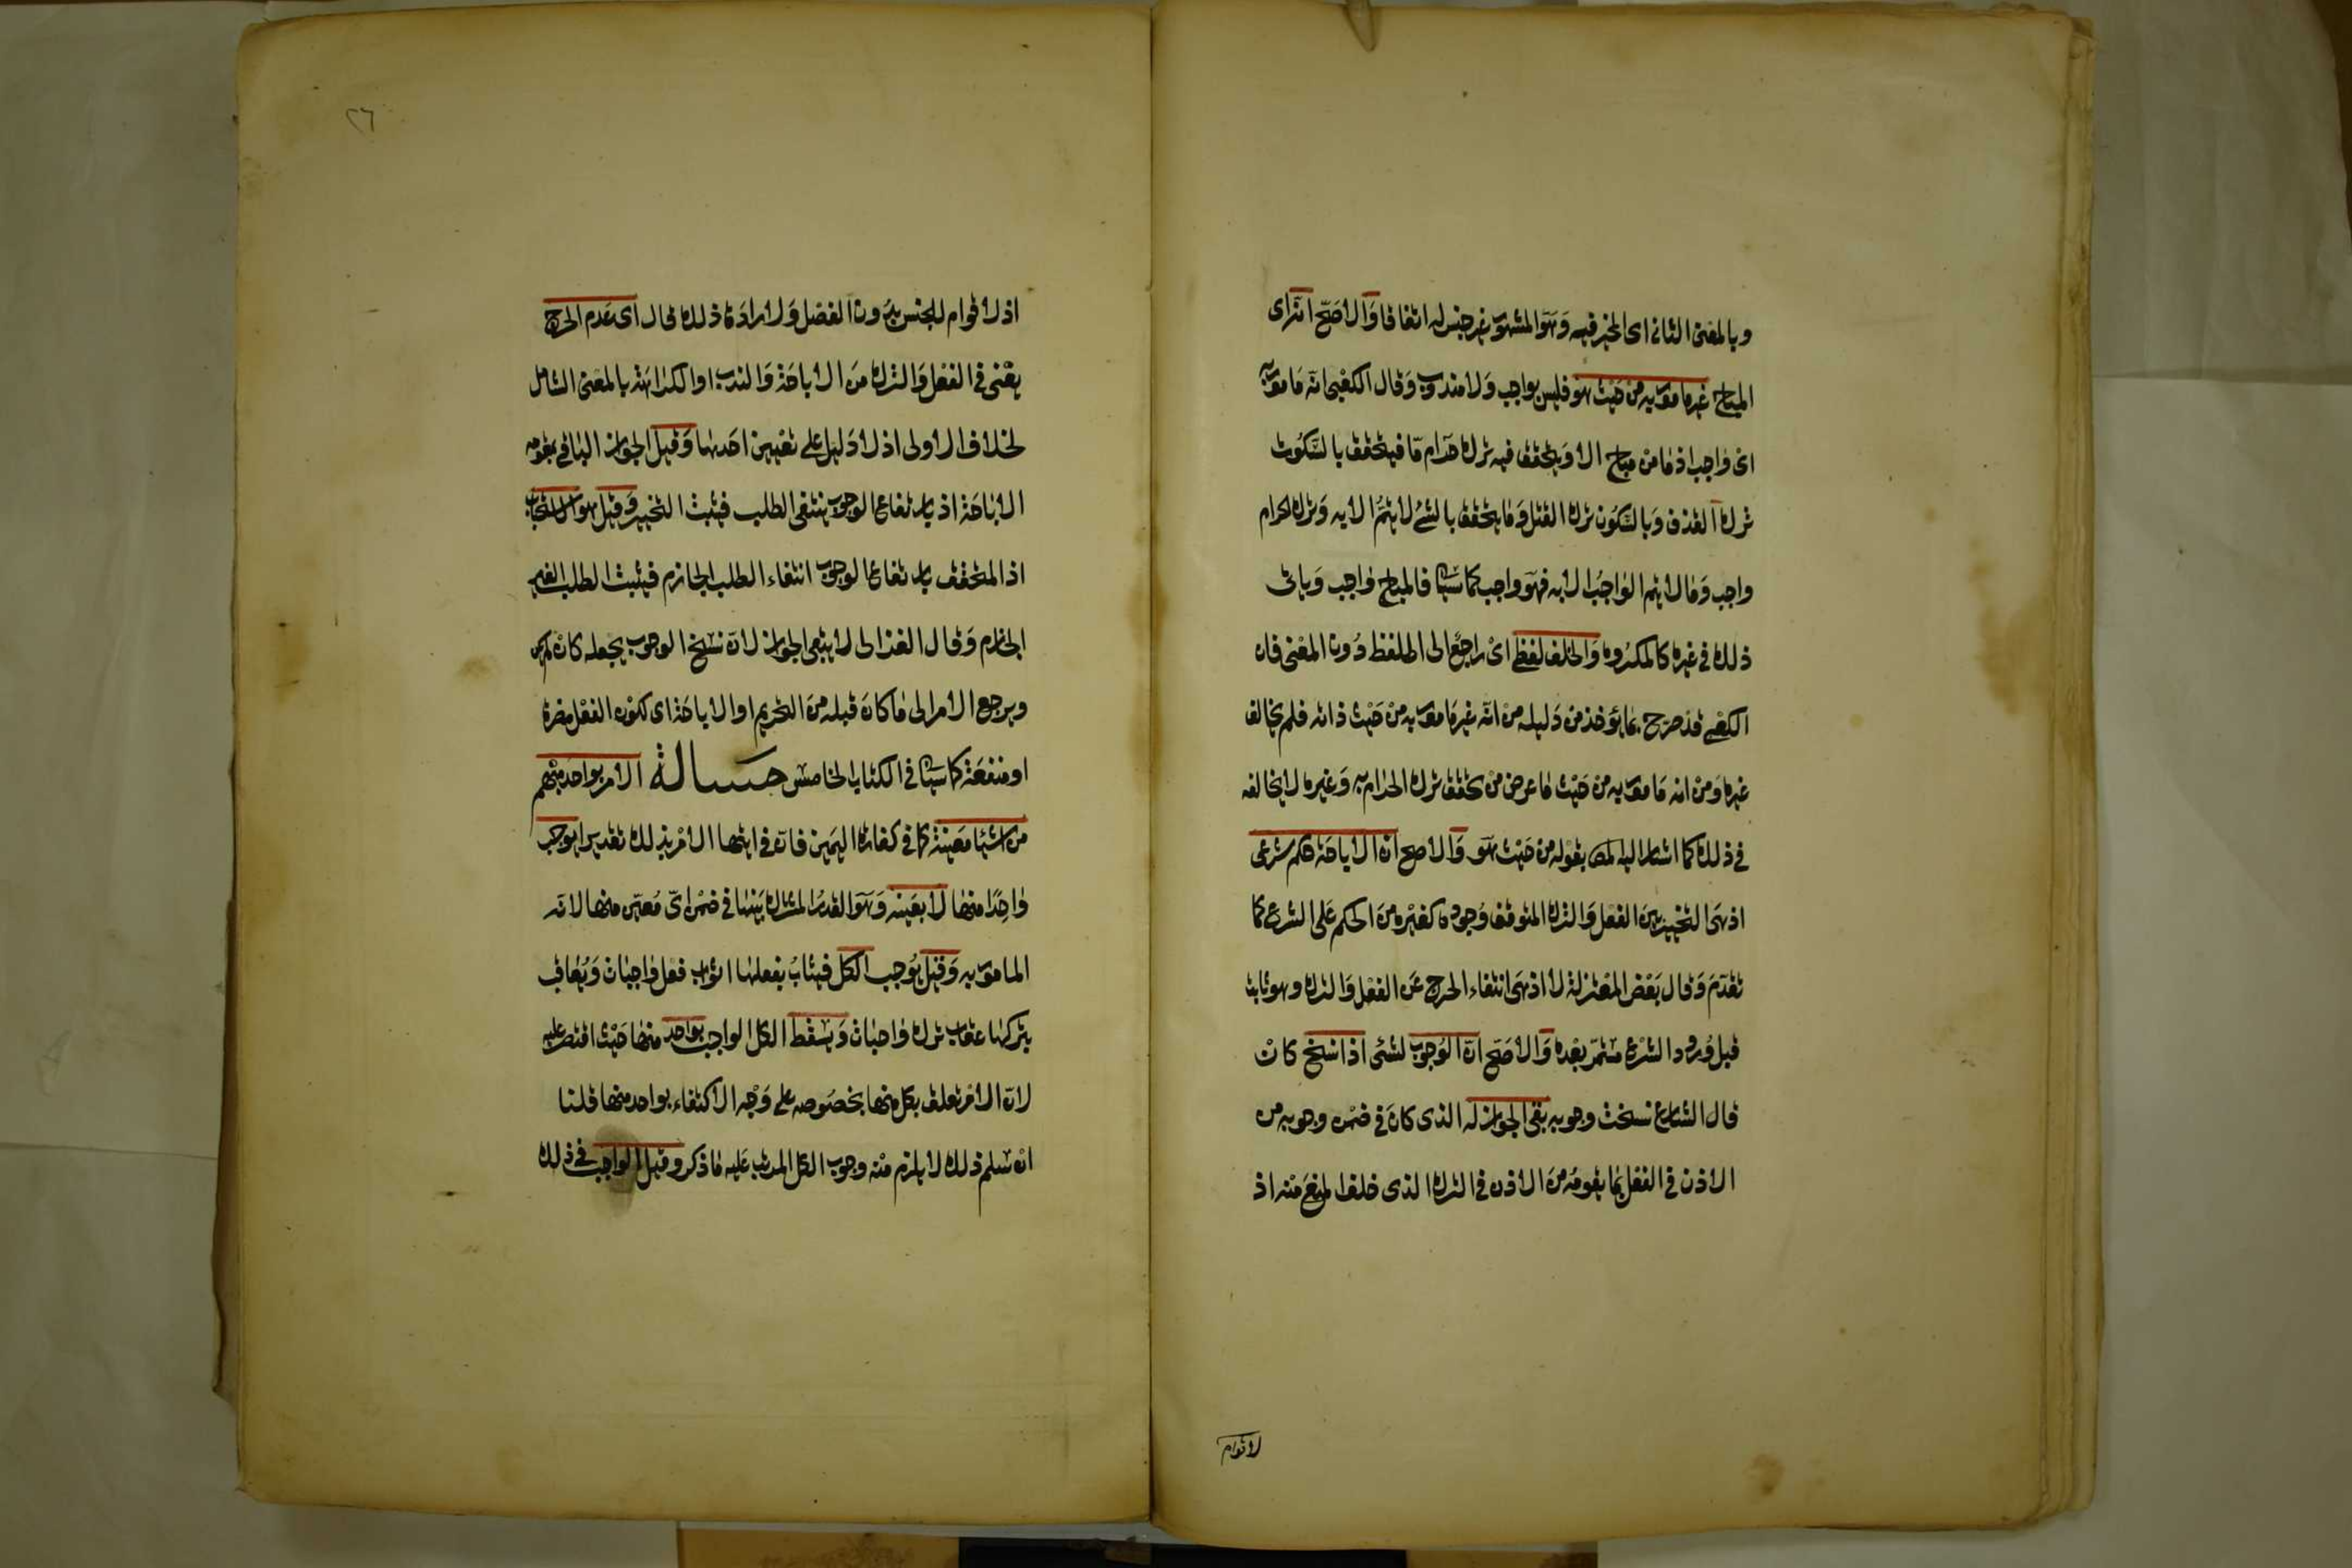 وبالمعنى الثاني اى المخير فيه وَهَو المشهور غير جنس له اتفاقا وَالاصَحّ انّه اى
المباح غير مامور به من حَيْث هو فليس بواجب وَلا مندوب وَقال الكعبى انّه مَامور به
اى واجب اذ ما من مباح الا وَيتحقق فيه ترك حَرام مّا فيتحقق بالسّكوت
ترك القذف وَبالسّكون ترك القتل وَمَا يتحقق بالشئ لا يتمُّ الا به وَترك الحرام
واجب وَمَا لا يتم الواجبُ الا به فهو واجب كما سَيَاتى فالمباح واجب وَياتى
ذلك فى غيره كالمكروه وَالخلف لفظى اىْ راجع الى اللفظ دُون المعْنى فان
الكعْبى قد صرّح بمَا يؤخذ من دَليله منْ انّه غير مَامور به منْ حَيْث ذاته فلم يخالف
غيره وَمنْ انه مَامور به من حَيْث مَا عرض منْ تحقق ترك الحرام به وَغيره لا يخالفه
فى ذلك كما اشار اليه المص بقوله من حَيْث هَو وَالاصح انّ الاباحَة حكم شرعى
اذ هىَ التخيير بيْن الفعْل وَالترك المتوقف وُجوده كغيْره منَ الحكم عَلى الشرع كما
تقدّمَ وَقال بَعْض المعْتزلة لا اذ هىَ انتفاء الحرج عَن الفعْل وَالترك وهو ثابت
قبل وُرود الشرْع مسْتمرّ بعْده وَالاصَحّ انّ الوُجوبَ لشئى اذا نسخ كانْ
قال الشارع نسخت وجوبه بَقى الجوَاز له الذى كانَ فى ضمْن وجوبه من
الاذن فى الفعْل بمَا يقومُه منَ الاذن فى الترك الذى خلف المنع منه اذ
لا قوام
٢٦
اذ لا قوام للجنس بدُون الفصْل وَلارادَة ذلك قال اى عَدم الحرج
يعْنى فى الفعْل وَالترك منَ الاباحَة وَالندب او الكراهَة بالمعْنى الشامل
لخلاف الاولى اذ لا دَليل على تعْيين احَدها وَقيل الجوَاز الباقى بمقومه
الابَاحَة اذ بارتفاع الوجوب ينتفى الطلب فيثبت التخيير وَقيل هو الاستحباب
اذ المتحقق بارتفاع الوجوب انتفاء الطلب الجازم فيثبت الطلب الغير
الجازم وَقال الغزالى لا يبقى الجواز لانّ نسْخ الوجوب يجعله كان لم يكن
ويرجع الامر الى مَا كانَ قبله منَ التحريم او الاباحَة اى لكون الفعْل مضرة
او منفعَة كما سَيَاتى فى الكتاب الخامس مسالة الامر بواحد مبْهم
من اشيَا معَينة كما فى كفارة اليَمين فانّ فى ايتها الامْر بذلك تقديرا يوجب
وَاحِدًا منهَا لا بعَيْنه وَهَو القدرُ المشترك بَيْنهَا فى ضمْن اىّ مُعيّن منها لانّه
المامور به وَقيْل يُوجب الكل فيثابُ بفعلهَا ثوابَ فعْل وَاجبَات وَيُعَاقب
بتركهَا عقاب ترك وَاجبَات وَيسْقط الكل الواجب بواحد منهَا حَيْث اقتصر عليه
لانّ الامْر تعلق بكل منهَا بخصُوصه على وَجْه الاكتفاء بواحد منها قلنا
انْ سلم ذلك لا يلزم منْه وجوب الكل المرتب عَليه مَا ذكر وقيل الواجب فى ذلك